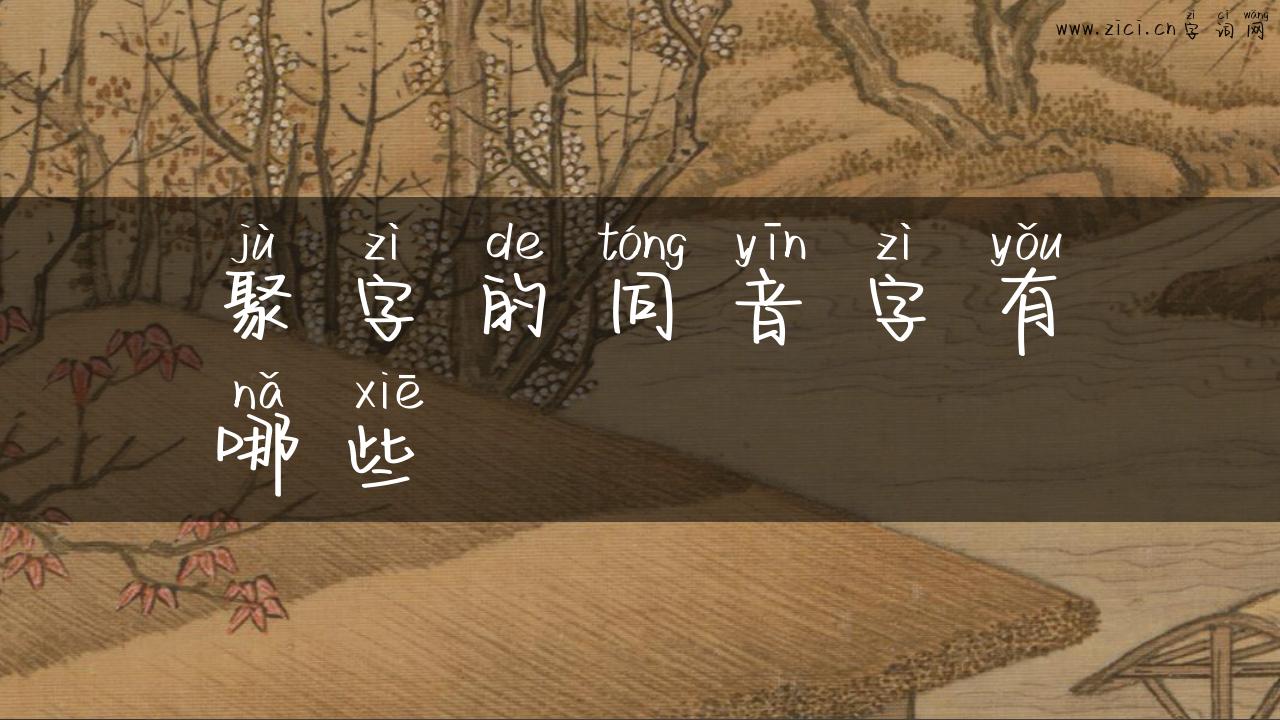 zì cí wǎng
www.zici.cn字词网
jù zì de tóng yīn zì yǒu
聚字的同音字有
nǎ xiē
哪些